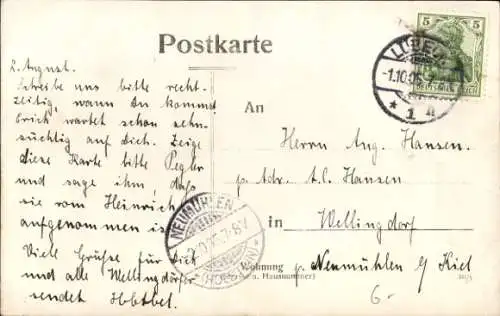 Postkarte
L. August.
Schreibe uns bitte recht-
zeitig, wann du kommst
wartet schon sehn-
süchtig auf dich. Zeige
diese Karte bitte Pegler
und sage ihm, daß
sie vom Heinrich
aufgenommen ist
Viele Grüße für Dich
und alle Wellingdörfer
sendet
An
Herrn Aug. Hansen.
p. Adr. A. C. Hansen
in Wellingdorf
Wohnung p/ Neumühlen b/ Kiel
(Str. u. Hausnummer)
6.-
5 5
LÜBECK
-1.10.05.
* 1
NEUMÜHLEN
2.10.05.7-8V